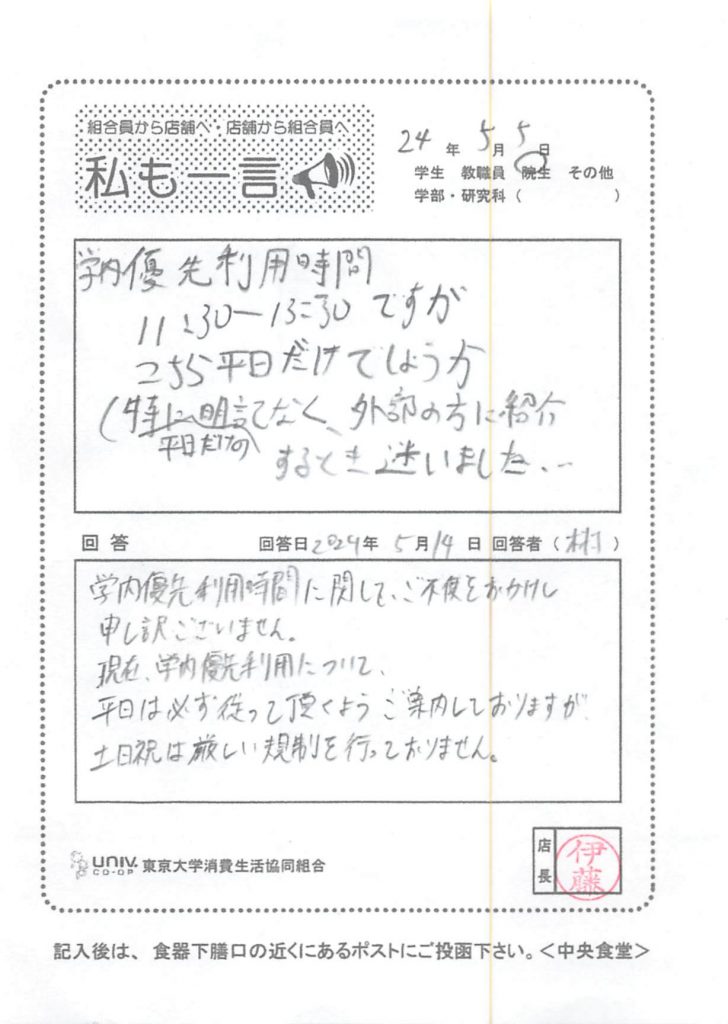 組合員から店舗へ・店舗から組合員へ
私も一言
24年5月5日
学生 教職員 院生 その他
学部・研究科( )
学内優先利用時間
11:30ー13:30ですが
こちら平日だけでしょうか
(特に明記てなく、外部の方に紹介
平日だけの
するとき迷いました...
回答 回答日2024年5月14日 回答者( )
学内優先利用時間に関して、ご不便をおかけし
申し訳ございません。
現在、学内優先利用について、
平日は必ず従って頂くようご案内しておりますが
土日祝は厳しい規制を行っておりません。
UNIV. CO-OP 東京大学消費生活協同組合
店長 伊藤
記入後は、食器下膳口の近くにあるポストにご投函下さい。<中央食堂>